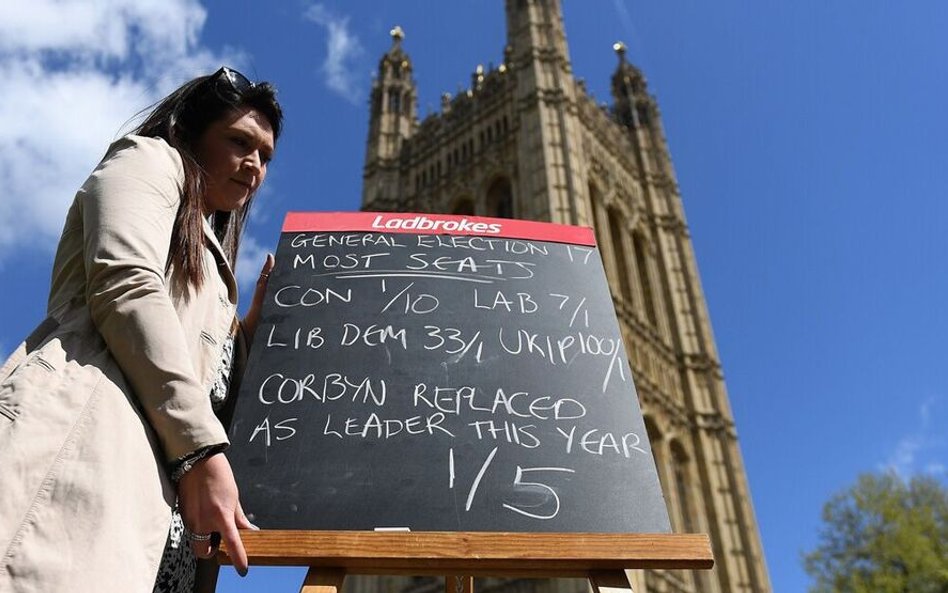 Ladbrokes
GENERAL ELECTION 17
MOST SEATS
CON 1/10 LAB 7/1
LIB DEM 33/1 UKIP 100/1
CORBYN REPLACED
AS LEADER THIS YEAR
1/5